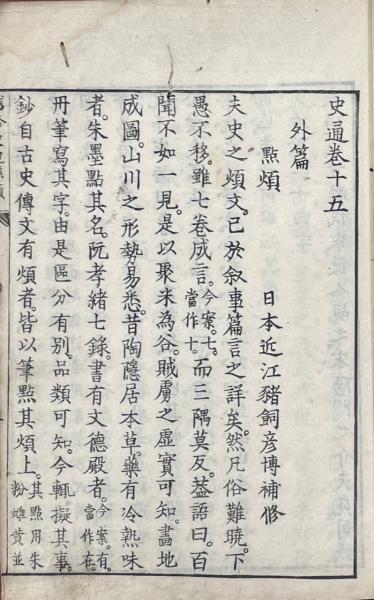 史通卷十五
外篇
點煩 日本近江豬飼彥博補修
夫史之煩文。已於叙事篇言之詳矣。然凡俗難曉。下
愚不移。雖七卷成言。今案。七。當作十。而三隅莫反。葢語曰。百
聞不如一見。是以聚米為谷。賊虜之虛實可知。畵地
成圖。山川之形勢易悉。昔陶隱居本草。藥有冷熱味
者。朱墨點其名。阮孝緒七錄。書有文德殿者。今案。有。當作在。
丹筆寫其字。由是區分有別。品類可知。今輒擬其事。
鈔自古史傳文有煩者。皆以筆點其煩上。其點用朱粉雌黄並